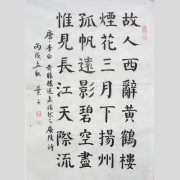 故人西辭黃鶴樓
煙花三月下揚州
孤帆遠影碧空盡
惟見長江天際流
唐李白黃鶴樓送孟浩然之廣陵詩
丙戌孟秋 葉